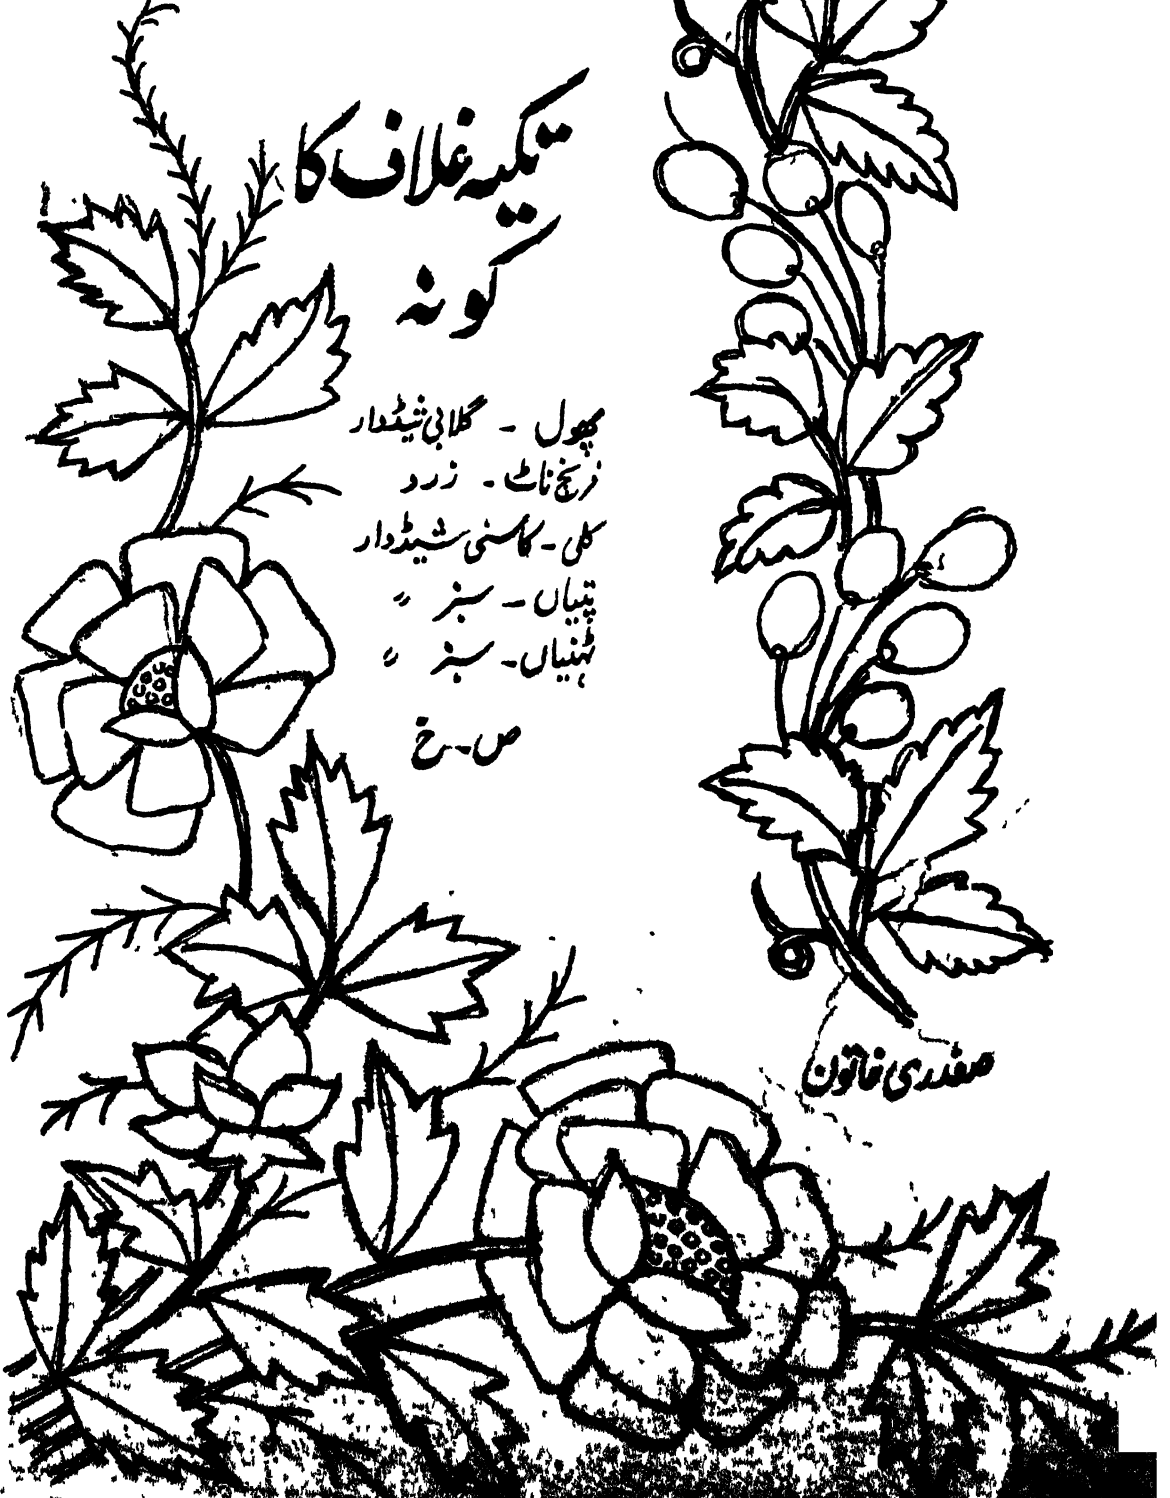 تکیہ غلاف کا
کونہ
پھول - گلابی شیڈدار
فرنچ ناٹ - زرد
کلی - کاسنی شیڈدار
پتیاں - سبز 〃
ٹہنیاں - سبز 〃
ص - خ
صفدری خاتون